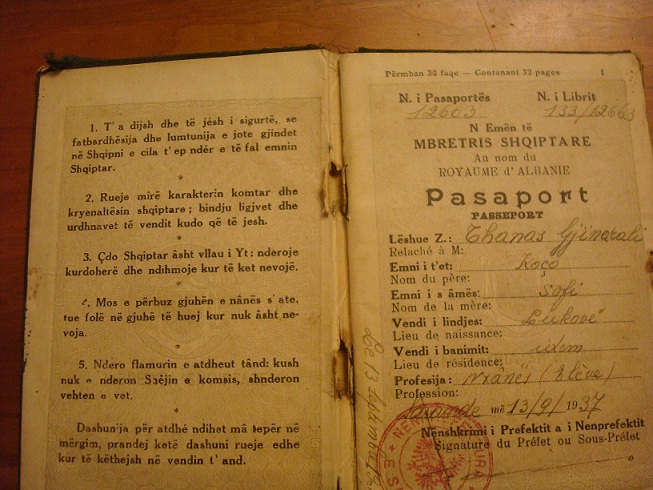 1. T'a dijsh dhe të jésh i sigurtë, se
fatbardhësija dhe lumtunija e jote gjindet
në Shqipni e cila t'ep ndér e të fal emnin
Shqiptar.
*
2. Rueje mirë karakterin komtar dhe
kryenaltësin shqiptare; bindju ligjvet dhe
urdhnavet të vendit kudo që te jesh.
*
3. Çdo Shqiptar âsht vllau i Yt: nderoje
kurdoherë dhe ndihmoje kur të ket nevojë.
*
4. Mos e përbuz gjuhën e nânës s'ate,
tue folë në gjuhë të huej kur nuk âsht ne-
voja.
*
5. Ndero flamurin e atdheut tând: kush
nuk e nderon Shêjin e komsis, shnderon
vehten e vet.
*
Dashunija për atdhé ndihet mâ tepër në
mërgim, prandej ketë dashuni rueje edhe
kur të këthejsh në vendin t'and.
Përmban 32 faqe — Contenant 32 pages
1
N. i Pasaportës
N. i Librit
12603
133/12663
N Emën të
MBRETRIS SHQIPTARE
Au nom du
ROYAUME d'ALBANIE
Pasaport
PASSEPORT
Lëshue Z.: Thanas Gjinarali
Relaché à M:
Emni i t'et: Koço
Nom du père:
Emni i s âmës: Sofi
Nom de la mère:
Vendi i lindjes: Lukovë
Lieu de naissance:
Vendi i banimit: idem
Lieu de résidence:
Profesija: Nxanës (Elève)
Profession:
Sarandë më 13/9/1937
Nënshkrimi i Prefektit a i Nenprefektit
Signature du Préfet ou Sous-Préfet